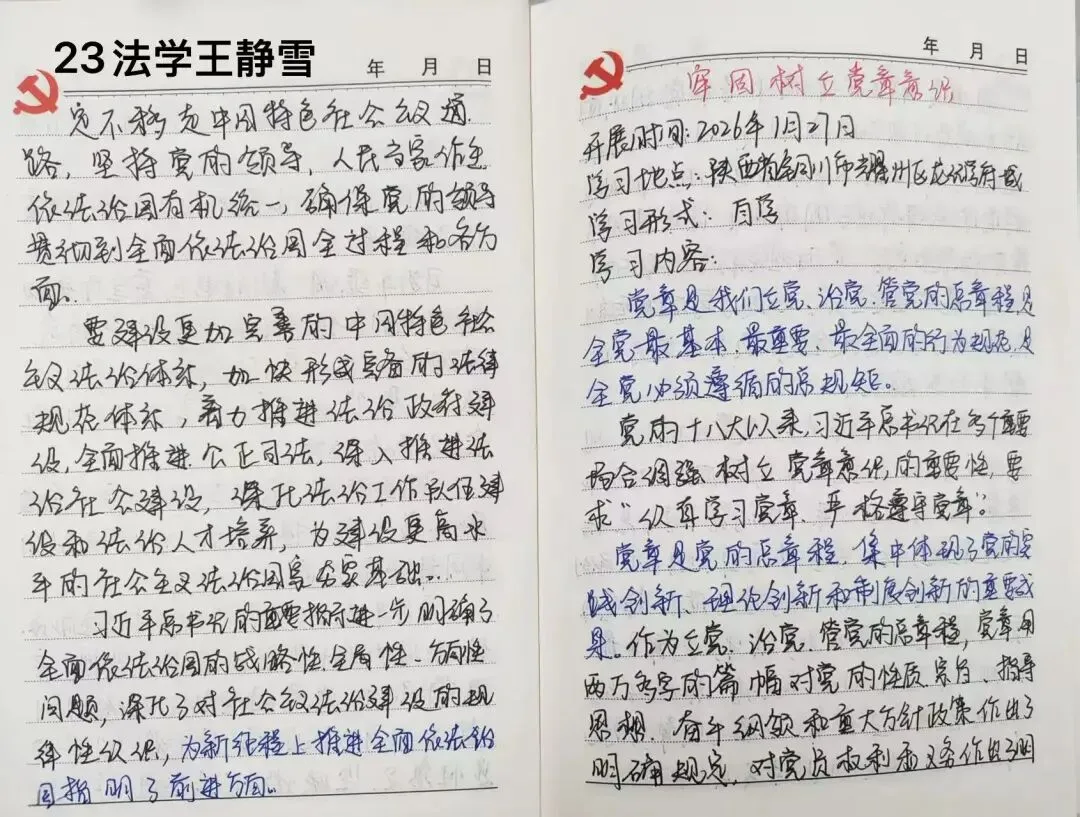 23法学王静雪
年 月 日
定不移走中国特色社会主义道
路，坚持党的领导，人民当家作主
依法治国有机统一，确保党的领导
贯彻到全面依法治国全过程和各方
面。
要建设更加完善的中国特色社会
主义法治体系，加快形成完备的法律
规范体系，着力推进法治政府建
设，全面推进公正司法，深入推进法
治社会建设，深化法治工作队伍建
设和法治人才培养，为建设更高水
平的社会主义法治国家夯实基础。
习近平总书记的重要指示进一步明确了
全面依法治国的战略性、全局性、方向性
问题，深化了对社会主义法治建设的规
律性认识，为新征程上推进全面依法治
国指明了前进方向。
年 月 日
牢固树立党章意识
开展时间：2026年1月27日
学习地点：陕西省铜川市耀州区龙记学府城
学习形式：自学
学习内容：
党章是我们立党、治党、管党的总章程，是
全党最基本、最重要、最全面的行为规范，是
全党必须遵循的总规矩。
党的十八大以来，习近平总书记在多个重要
场合强调树立党章意识的重要性，要
求“认真学习党章、严格遵守党章”。
党章是党的总章程，集中体现了党的实
践创新、理论创新和制度创新的重要成
果。作为立党、治党、管党的总章程，党章用
两万多字的篇幅对党的性质宗旨、指导
思想、奋斗纲领和重大方针政策作出了
明确规定，对党员权利和义务作出了明